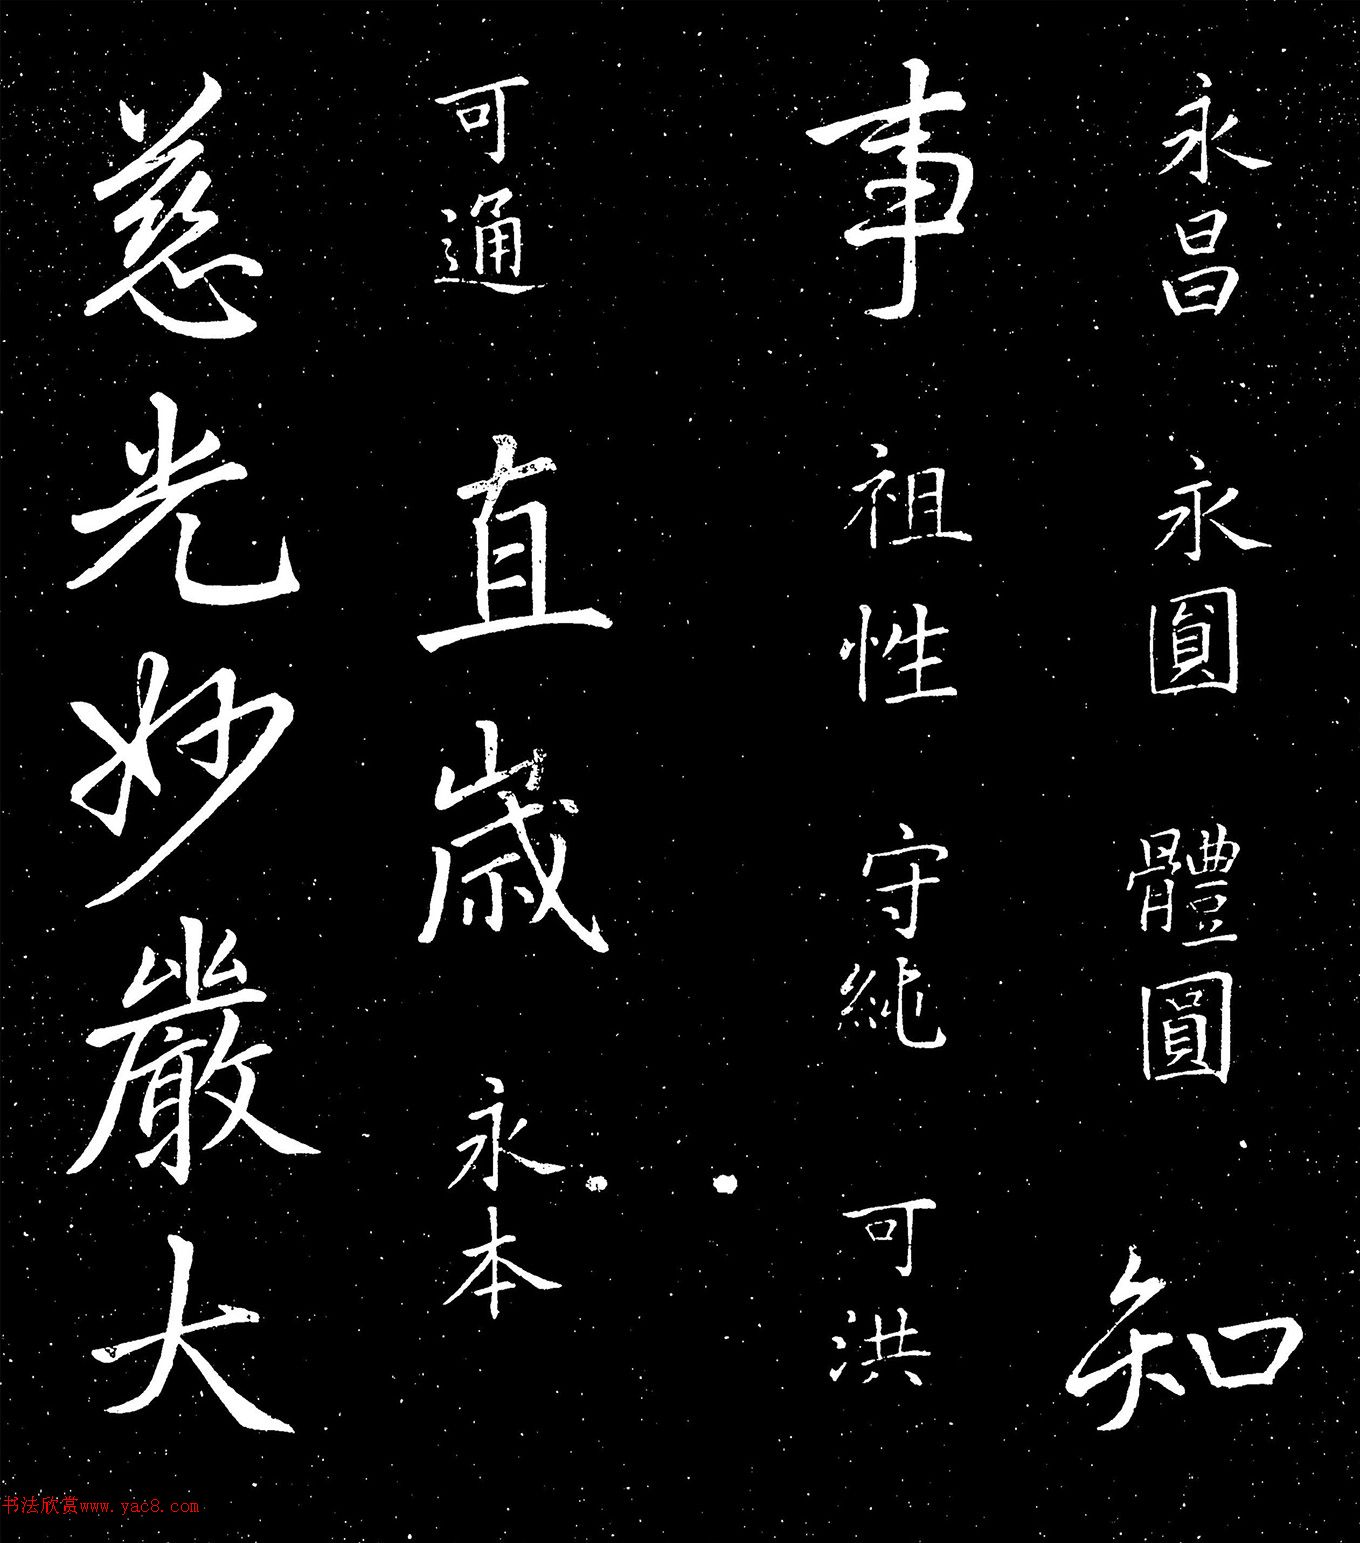 永昌 永圓 體圓 知
事 祖性 守純 可洪
可通 直歲 永本
慈光妙嚴大
书法欣赏www.yac8.com